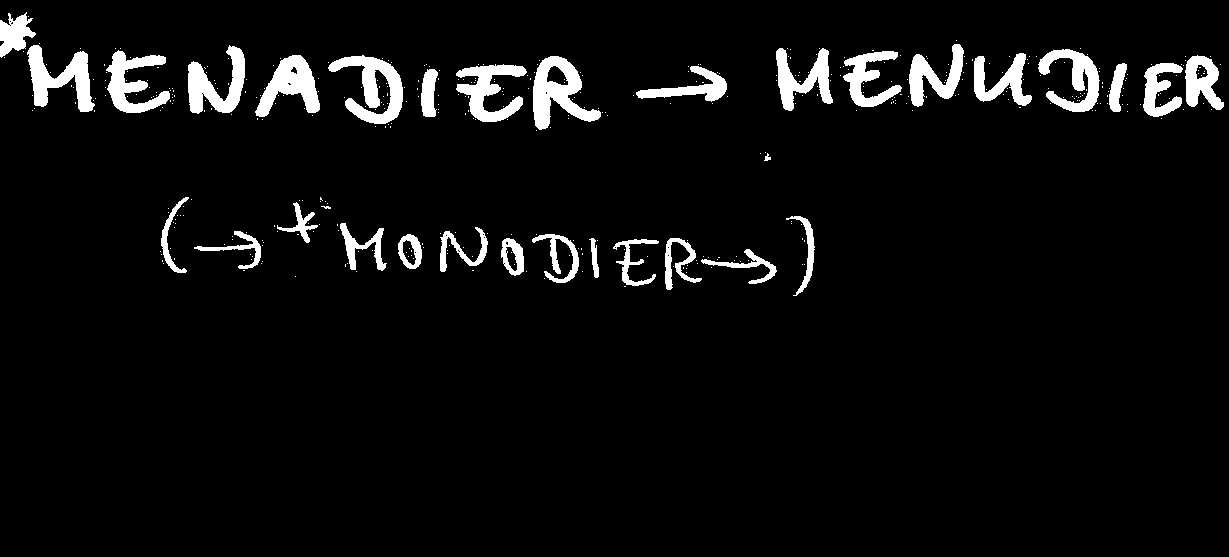 *MENADIER → MENUDIER
(→ *MONODIER →)